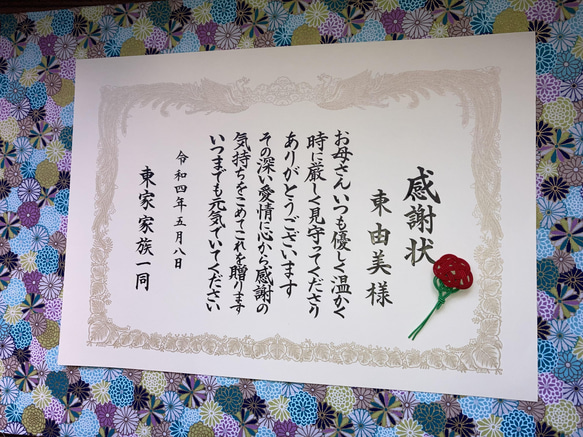 感謝状
東由美様
お母さんいつも優しく温かく
時に厳しく見守ってくださり
ありがとうございます
その深い愛情に心から感謝の
気持ちをこめてこれを贈ります
いつまでも元気でいてください
令和四年五月八日
東家家族一同